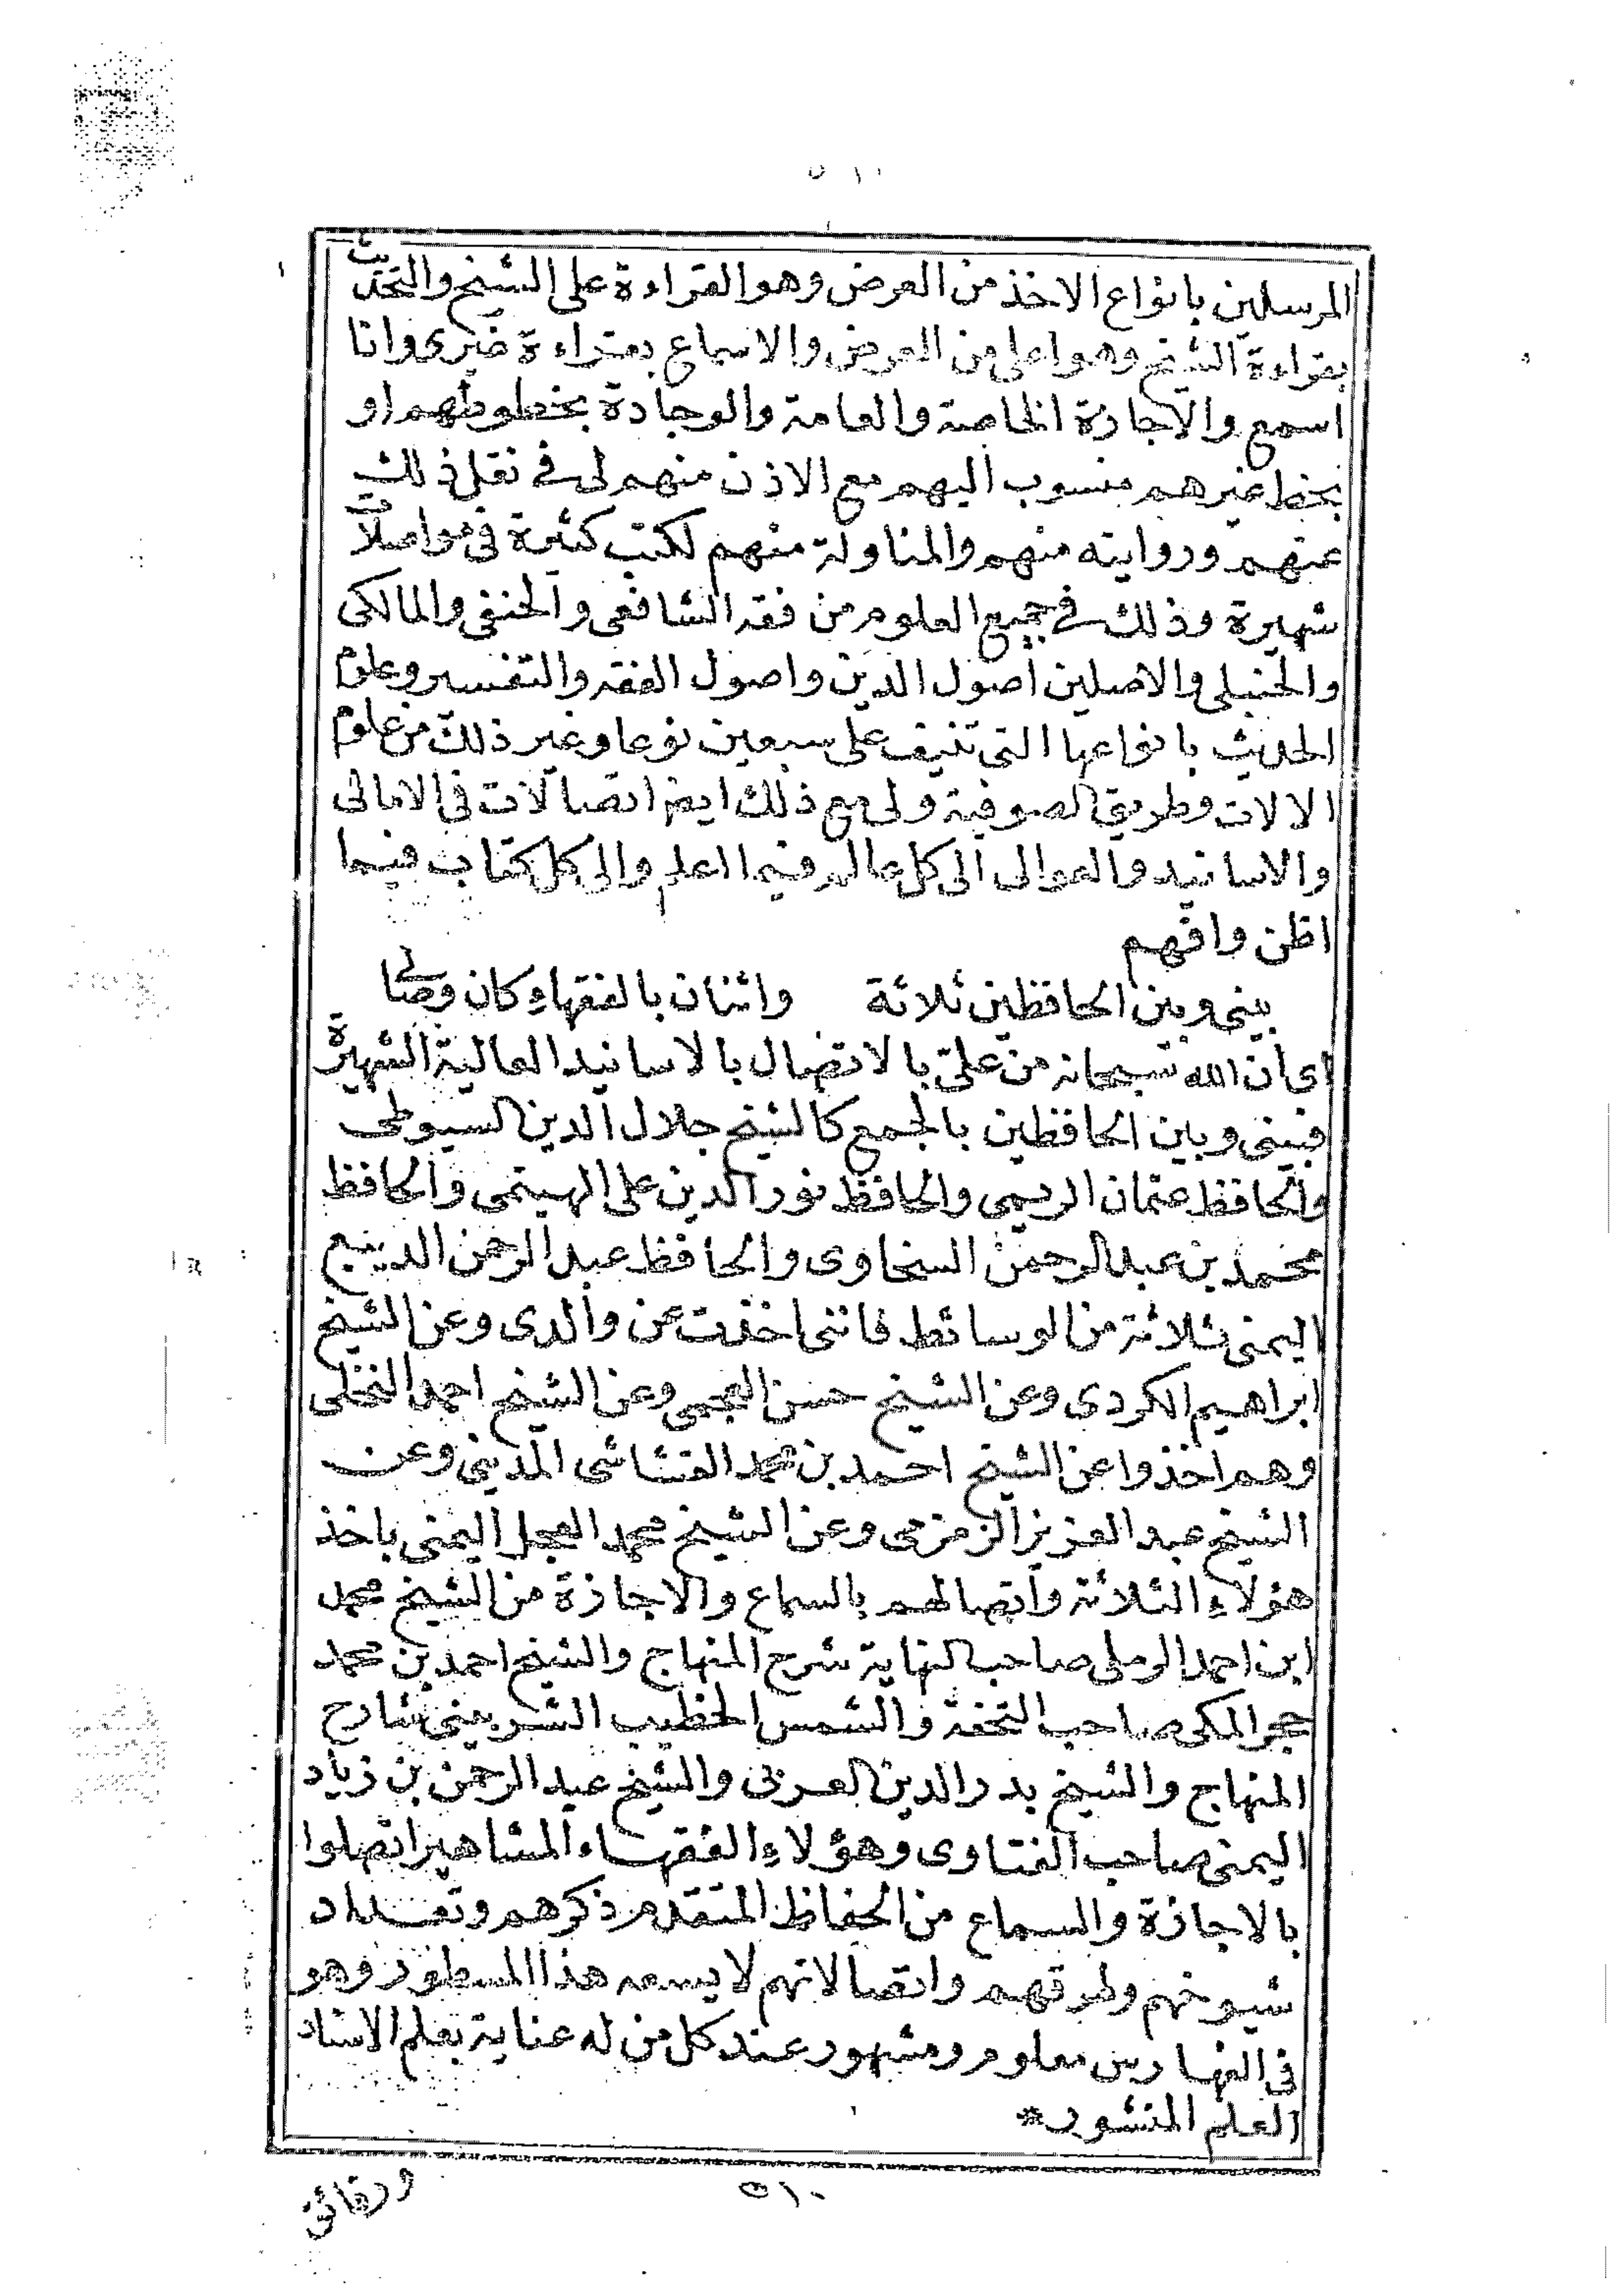 ٥١٠
المرسلين بانواع الاخذ من العرض وهو القراءة على الشيخ والتحديث
بقراءة الشيخ وهو اعلى من العرض والاسماع بقراءة غيرى وانا
اسمع والاجازة الخاصة والعامة والوجادة بخطوطهم او
بخط غيرهم منسوب اليهم مع الاذن منهم لى فى نقل ذلك
عنهم وروايته منهم والمناولة منهم لكتب كثيرة فى مواصلات
شهيرة وذلك فى جميع العلوم من فقه الشافعى والحنفى والمالكى
والحنبلى والاصلين اصول الدين واصول الفقه والتفسير وعلوم
الحديث بانواعها التى تنيف على سبعين نوعا وغير ذلك من علوم
الالات وطريق الصوفية ولى مع ذلك ايضا اتصالات فى الامالى
والاسانيد والعوالى الى كل عالم فيما اعلم والى كل كتاب فيما
اظن وافهم
بينى وبين الحافظين ثلاثة واثنان بالفقهاء كان وصالى
اى ان الله سبحانه من على بالاتصال بالاسانيد العالية الشهيرة
فبينى وبين الحافظين بالجمع كالشيخ جلال الدين السيوطى
والحافظ عثمان الديمى والحافظ نور الدين على الهيتمى والحافظ
محمد بن عبد الرحمن السخاوى والحافظ عبد الرحمن الديبع
اليمنى ثلاثة من الوسائط فاننى اخذت عن والدى وعن الشيخ
ابراهيم الكردى وعن الشيخ حسن العجمى وعن الشيخ احمد النخلى
وهم اخذوا عن الشيخ احمد بن محمد القشاشى المدينى وعن
الشيخ عبد العزيز الزمزمى وعن الشيخ محمد العجل اليمنى باخذ
هؤلاء الثلاثة واتصالهم بالسماع والاجازة من الشيخ محمد
ابن احمد الرملى صاحب النهاية شرح المنهاج والشيخ احمد بن محمد
حجر المكى صاحب التحفة والشمس الخطيب الشربينى شارح
المنهاج والشيخ بدر الدين العزى والشيخ عبد الرحمن بن زياد
اليمنى صاحب الفتاوى وهؤلاء الفقهاء المشاهير اتصلوا
بالاجازة والسماع من الحفاظ المتقدم ذكرهم وتعداد
شيوخهم وطرقهم واتصالاتهم لا يسعه هذا المسطور وهو
فى الفهارس معلوم ومشهور عند كل من له عناية بعلم الاسناد
العلم المنشور *
٥١٠
ورقائق